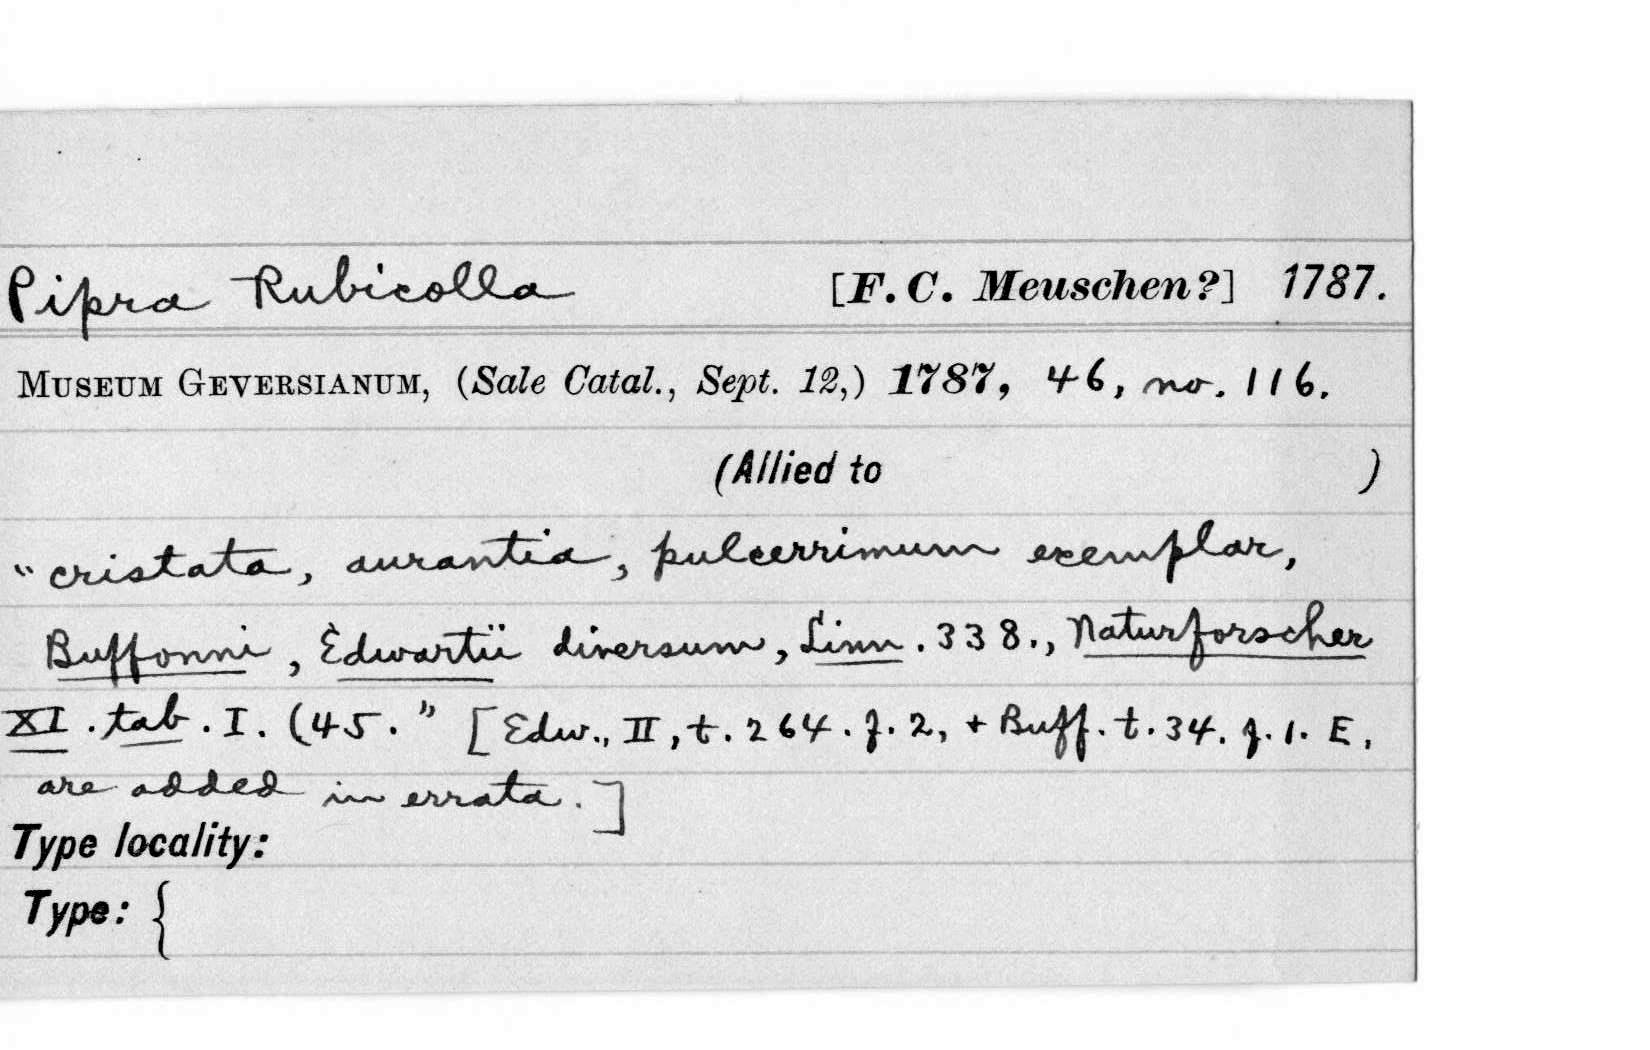 Pipra Rubicolla [F. C. Meuschen?] 1787.
MUSEUM GEVERSIANUM, (Sale Catal., Sept. 12,) 1787, 46, no. 116.
(Allied to )
"cristata, aurantia, pulcerrimum exemplar,
Buffonni, Èdwartii diversum, Linn. 338., Naturforscher
XI. tab. I. (45." [Edw., II, t. 264. f. 2, + Buff. t. 34. f. 1. E,
are added in errata.]
Type locality:
Type: {